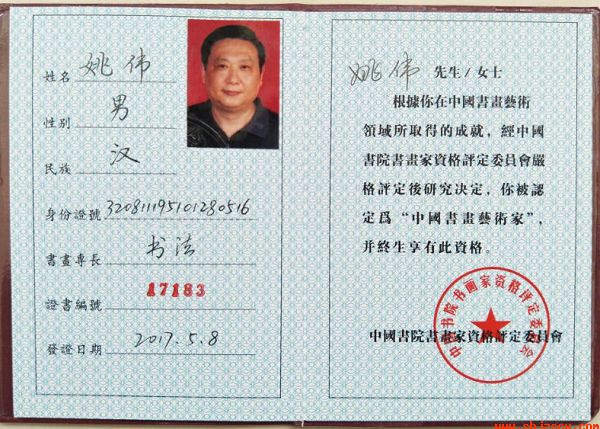 姓名 姚伟
性别 男
民族 汉
身份證號 320811195101280516
書畫專長 书法
證書編號 17183
發證日期 2017.5.8
姚伟 先生/女士
根據你在中國書畫藝術
領域所取得的成就，經中國
書院書畫家資格評定委員會嚴
格評定後研究決定，你被認
定爲“中國書畫藝術家”，
并終生享有此資格。
中国书院书画家资格评定委员会
中國書院書畫家資格評定委員會